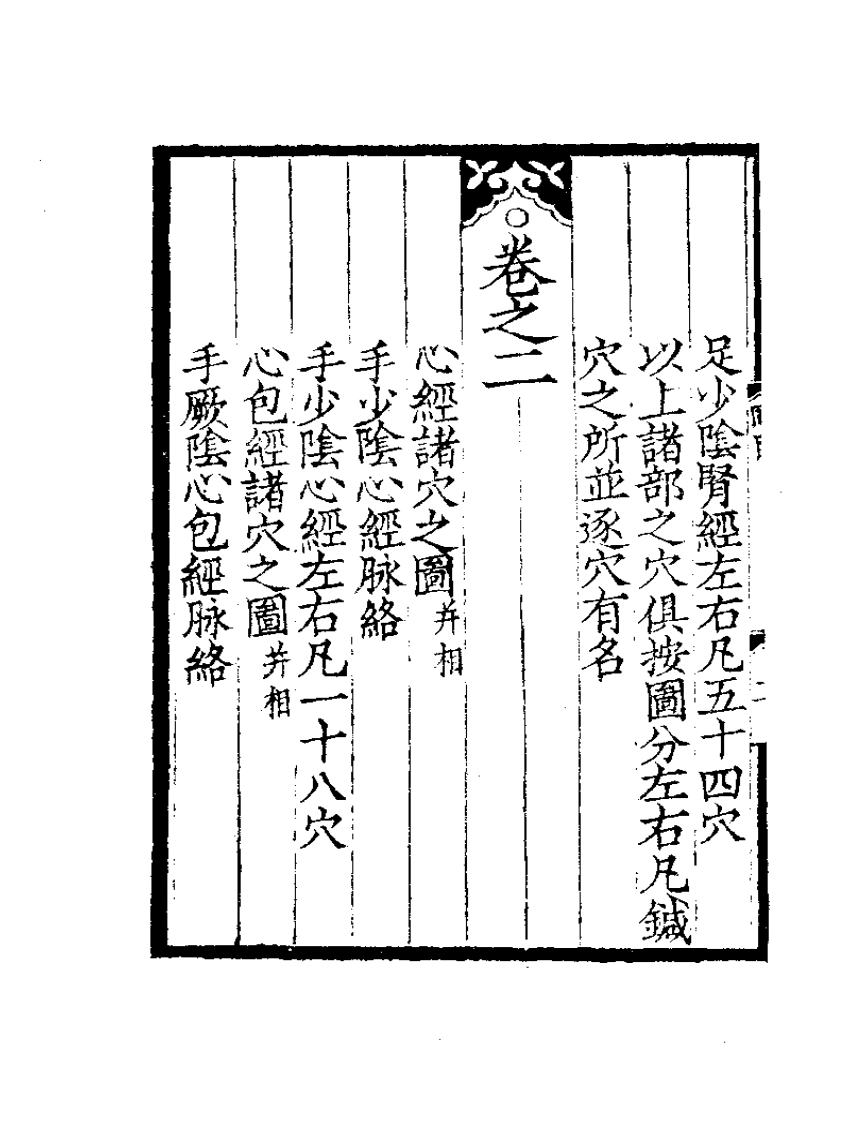 足少陰腎經左右凡五十四穴
以上諸部之穴俱按圖分左右凡鍼
穴之所並逐穴有名
○卷之二
心經諸穴之圖并相
手少陰心經脉絡
手少陰心經左右凡一十八穴
心包經諸穴之圖并相
手厥陰心包經脉絡